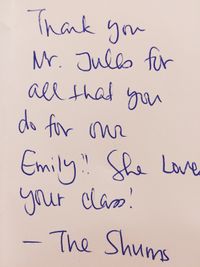 Thank you
Mr. Jules for
all that you
do for our
Emily!! She Love
your class!
— The Shums